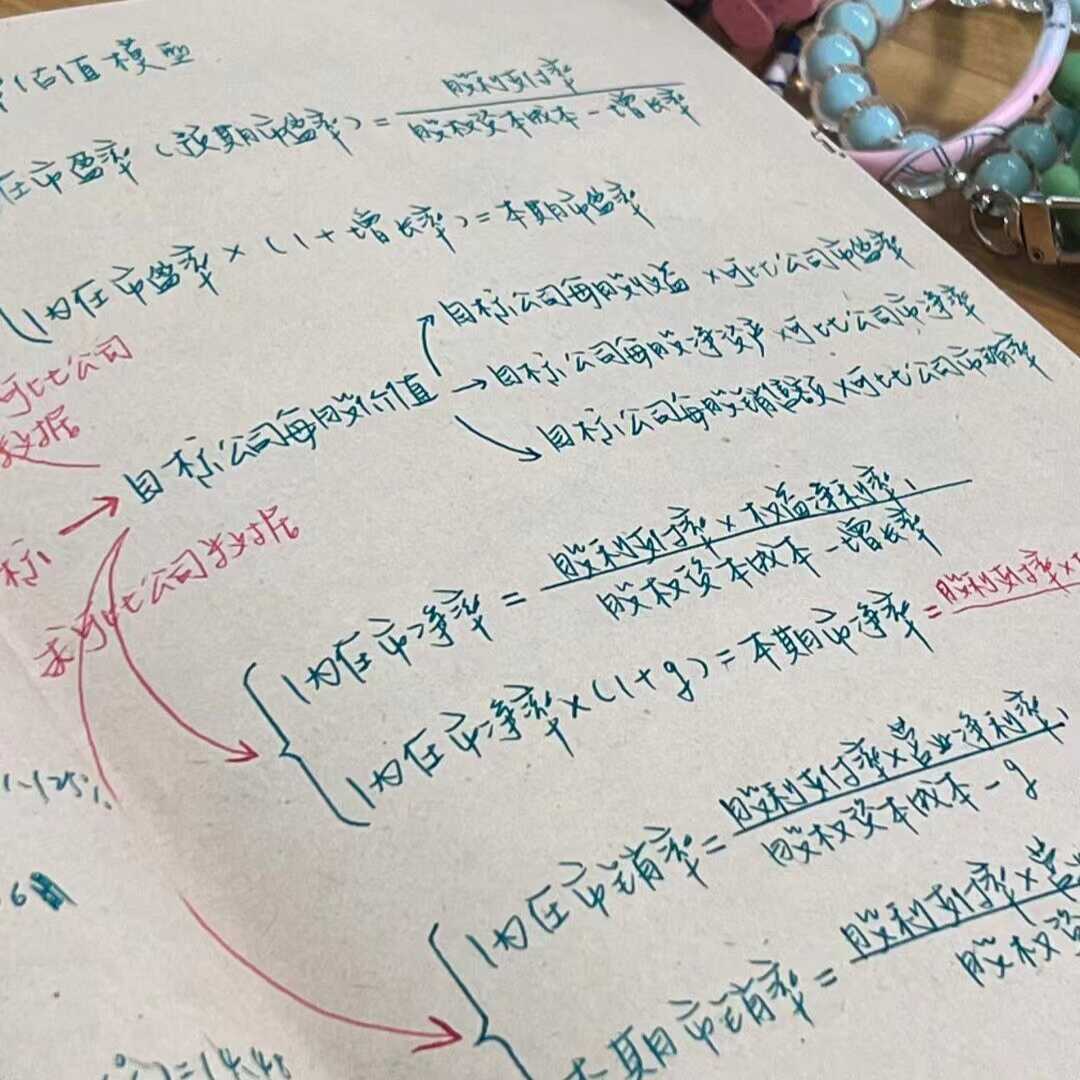 估值模型
在市盈率（预期市盈率）= 股利支付率
股权资本成本 - 增长率
内在市盈率 ×（1+增长率）= 本期市盈率
可比公司
数据
目标公司每股价值
→ 目标公司每股收益 × 可比公司市盈率
→ 目标公司每股净资产 × 可比公司市净率
→ 目标公司每股销售额 × 可比公司市销率
标 →
求可比公司数据
内在市净率 = 股利支付率 × 权益净利率
股权资本成本 - 增长率
内在市净率 ×（1+g）= 本期市净率 = 股利支付率 ×
内在市销率 = 股利支付率 × 营业净利率
股权资本成本 - g
本期市销率 = 股利支付率 × 营业
股权资
)=14.48